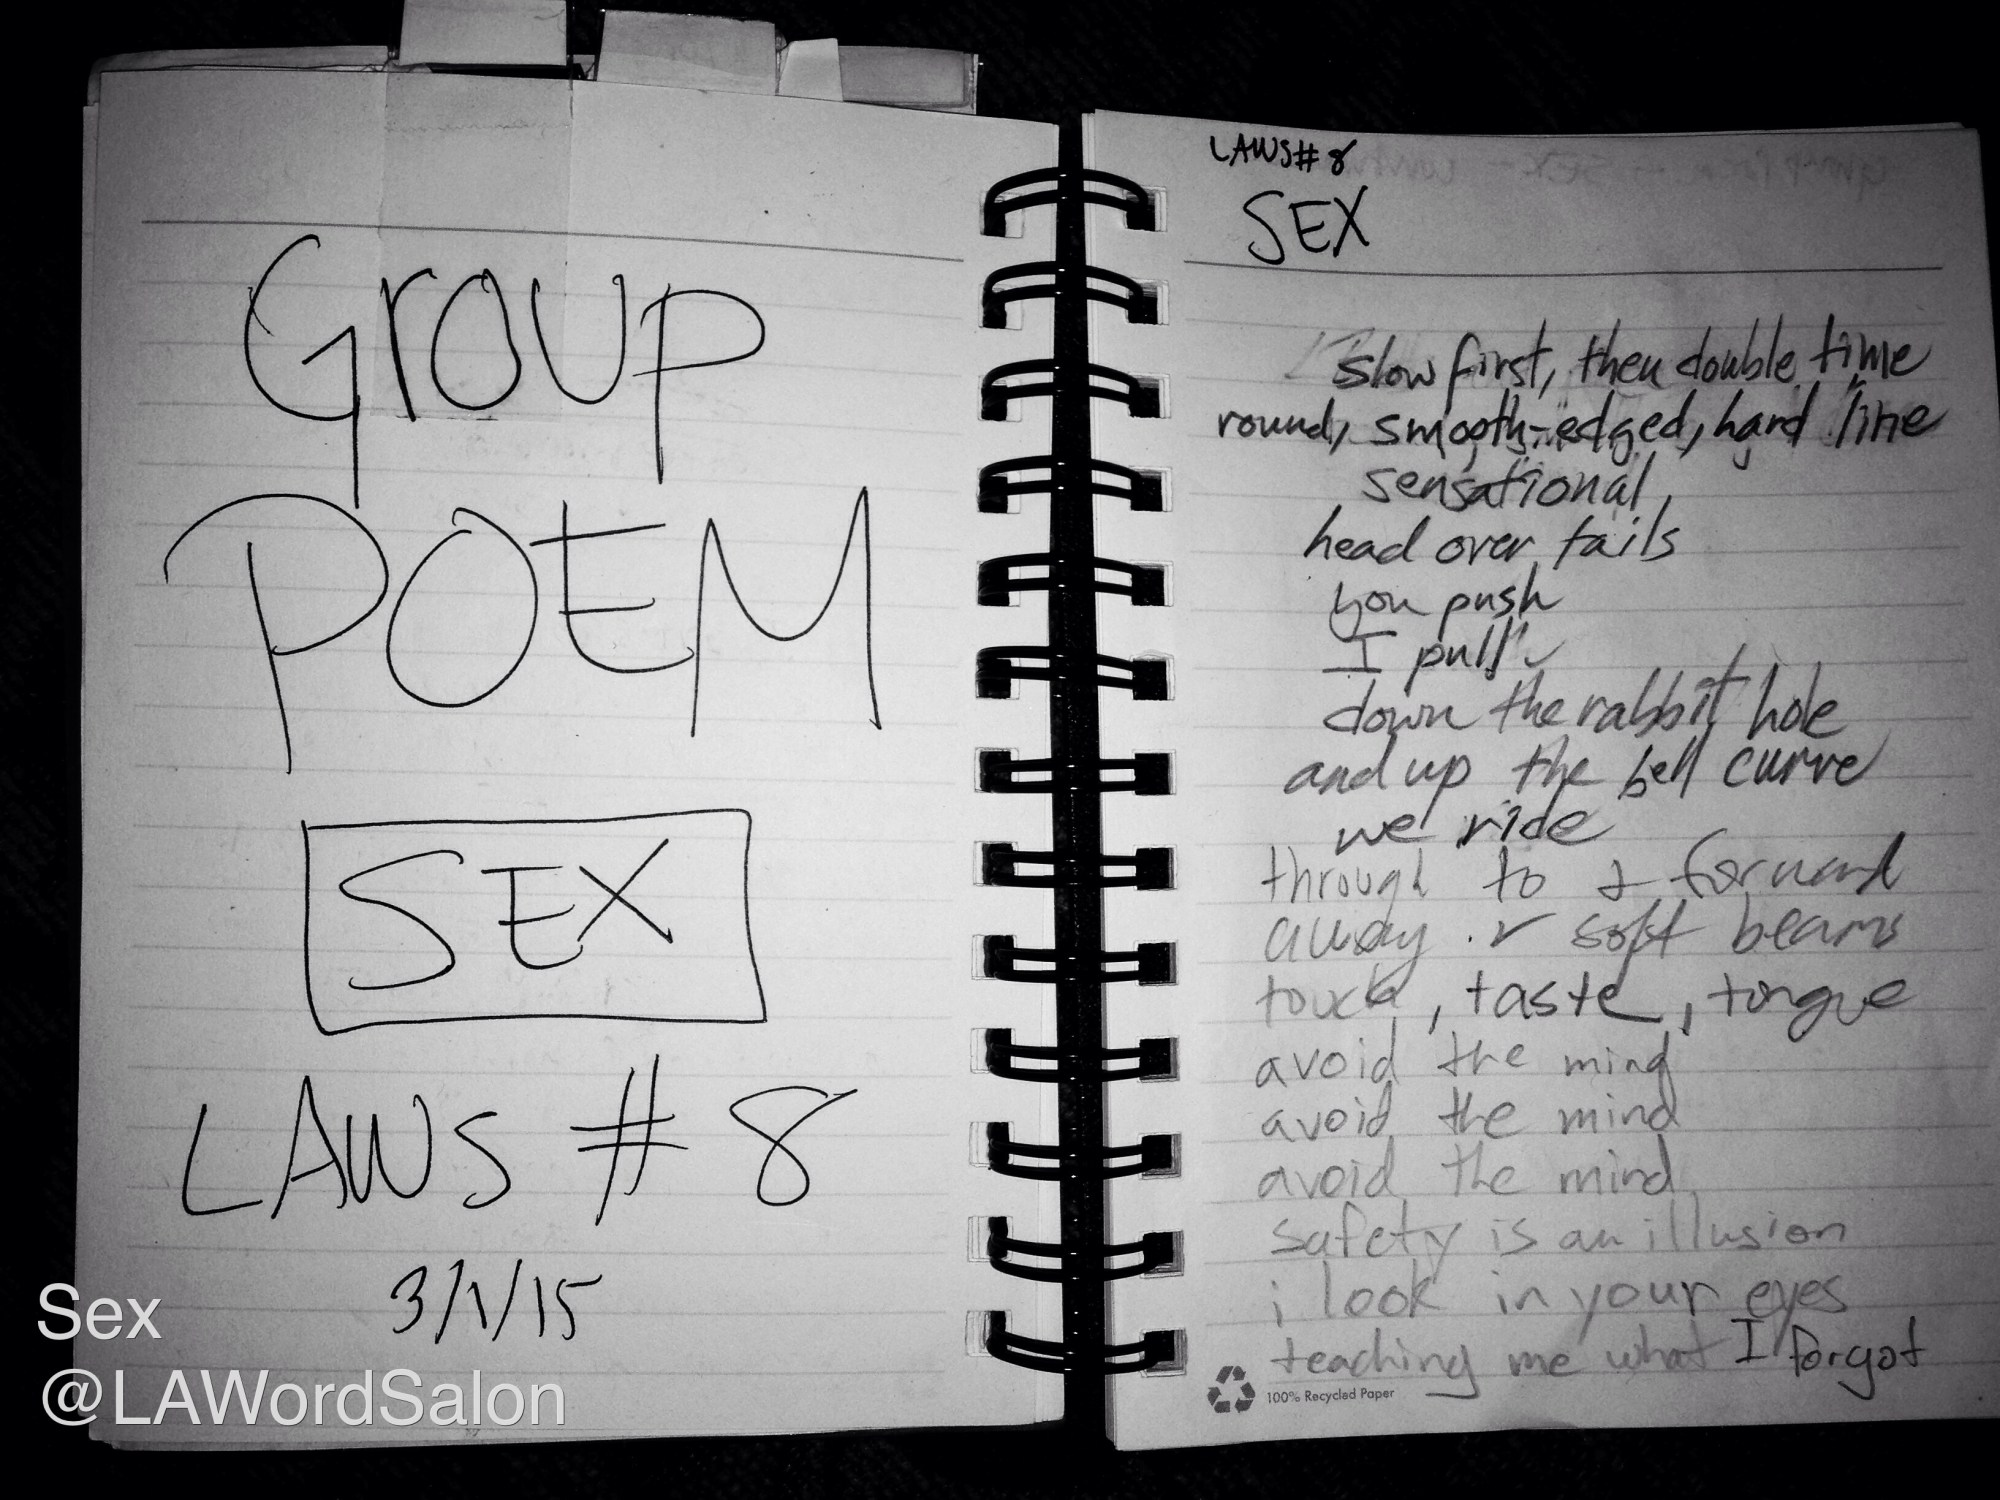 GROUP
POEM
SEX
LAWS # 8
3/1/15
Sex
@LAWordSalon
LAWS # 8
SEX
slow first, then double time
round, smooth-edged, hard line
sensational
head over tails
you push
I pull
down the rabbit hole
and up the bell curve
we ride
through to & forward
away soft beams
touch, taste, tongue
avoid the mind
avoid the mind
avoid the mind
safety is an illusion
i look in your eyes
teaching me what I forgot
100% Recycled Paper